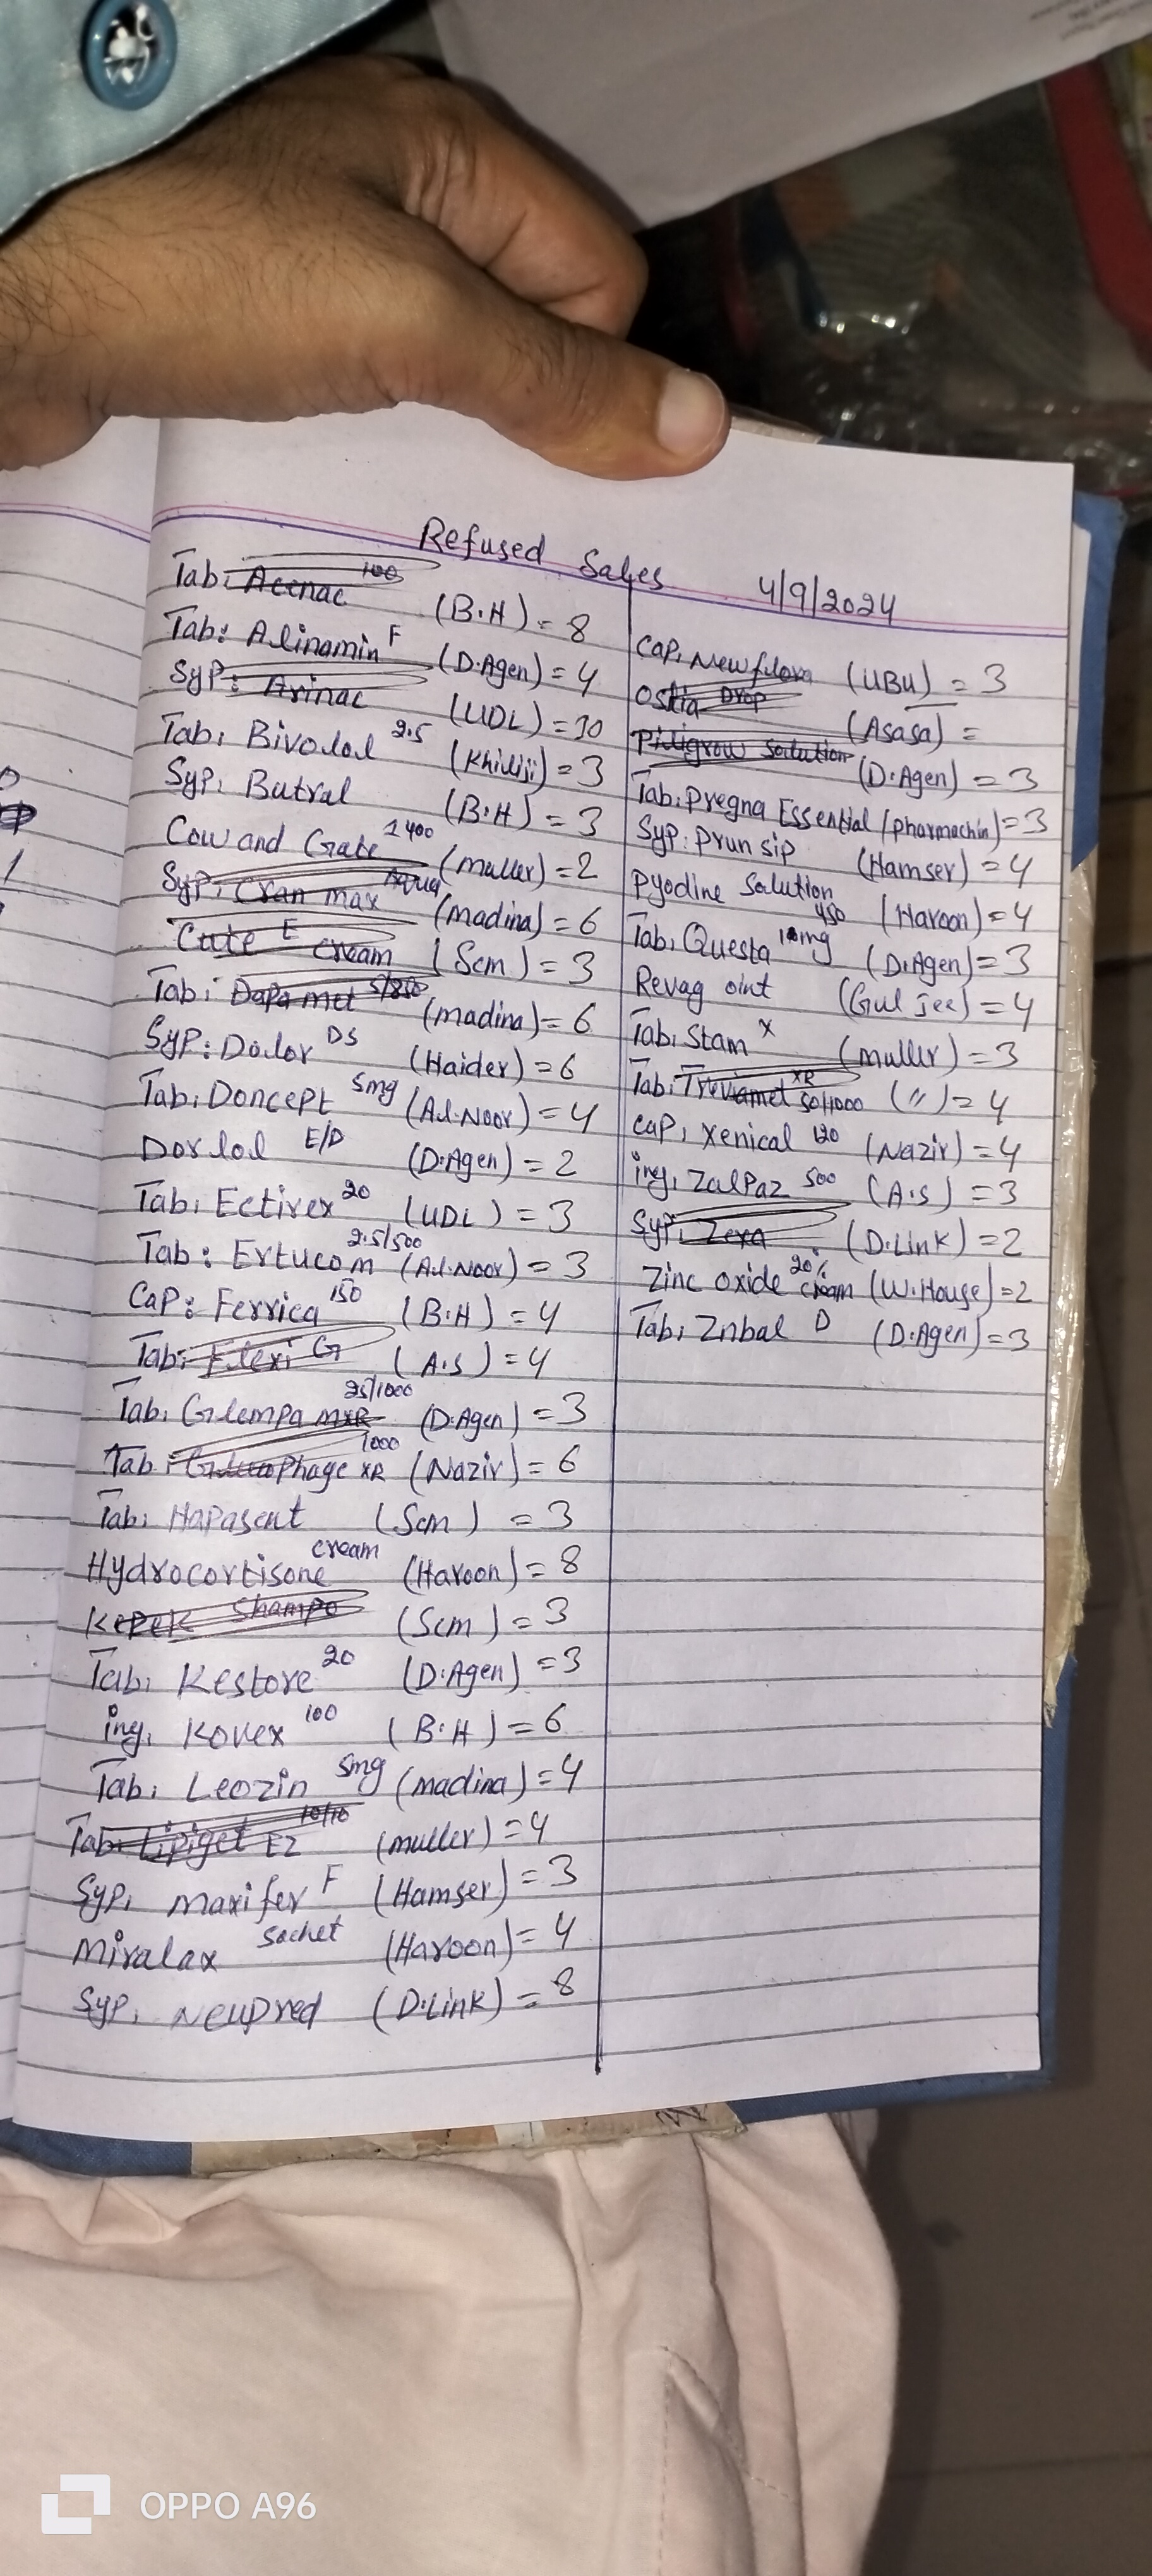 Refused Sales 4/9/2024
Tab: Acenac 100 (B.H) = 8
Tab: Alinamin F (D.Agen) = 4
Syp: Arinac (UDL) = 10
Tab: Bivolol 2.5 (Khiliji) = 3
Syp: Butral (B.H) = 3
Cow and Gate 1 400 (muller) = 2
Syp: Cran max Aqua (madina) = 6
Cute E cream (Scm) = 3
Tab: Dapa met 5/850 (madina) = 6
Syp: Dolor DS (Haider) = 6
Tab: Doncept 5mg (Al.Noor) = 4
Dorlol E/D (D.Agen) = 2
Tab: Ectirex 20 (UDL) = 3
Tab: Ertucom 2.5/500 (Al.Noor) = 3
Cap: Ferrica 150 (B.H) = 4
Tab: Flexi G (A.S) = 4
Tab: Glempa MXR 25/1000 (D.Agen) = 3
Tab: Glucophage XR 1000 (Nazir) = 6
Tab: Hapasent (Scm) = 3
Hydrocortisone cream (Haroon) = 8
Kepek Shampo (Scm) = 3
Tab: Kestore 20 (D.Agen) = 3
inj: Kovex 100 (B.H) = 6
Tab: Leozin 5mg (madina) = 4
Tab: Lipiget EZ 10/10 (muller) = 4
Syp: maxifer F (Hamser) = 3
Miralax sachet (Haroon) = 4
Syp: Neupred (D.Link) = 8
Cap: Newflora (UBU) = 3
Ostia Drop (Asasa) =
Piligrow Solution (D.Agen) = 3
Tab: Pregna Essential (pharmachin) = 3
Syp: Prun sip (Hamser) = 4
Pyodine Solution 450 (Haroon) = 4
Tab: Questa 10mg (D.Agen) = 3
Revag oint (Gul jee) = 4
Tab: Stam X (muller) = 3
Tab: Treviamet XR 50/1000 (") = 4
Cap: Xenical 120 (Nazir) = 4
inj: Zalpaz 500 (A.S) = 3
Syp: Zexa (D.Link) = 2
Zinc oxide 20% cream (W.House) = 2
Tab: Znbal D (D.Agen) = 3
OPPO A96